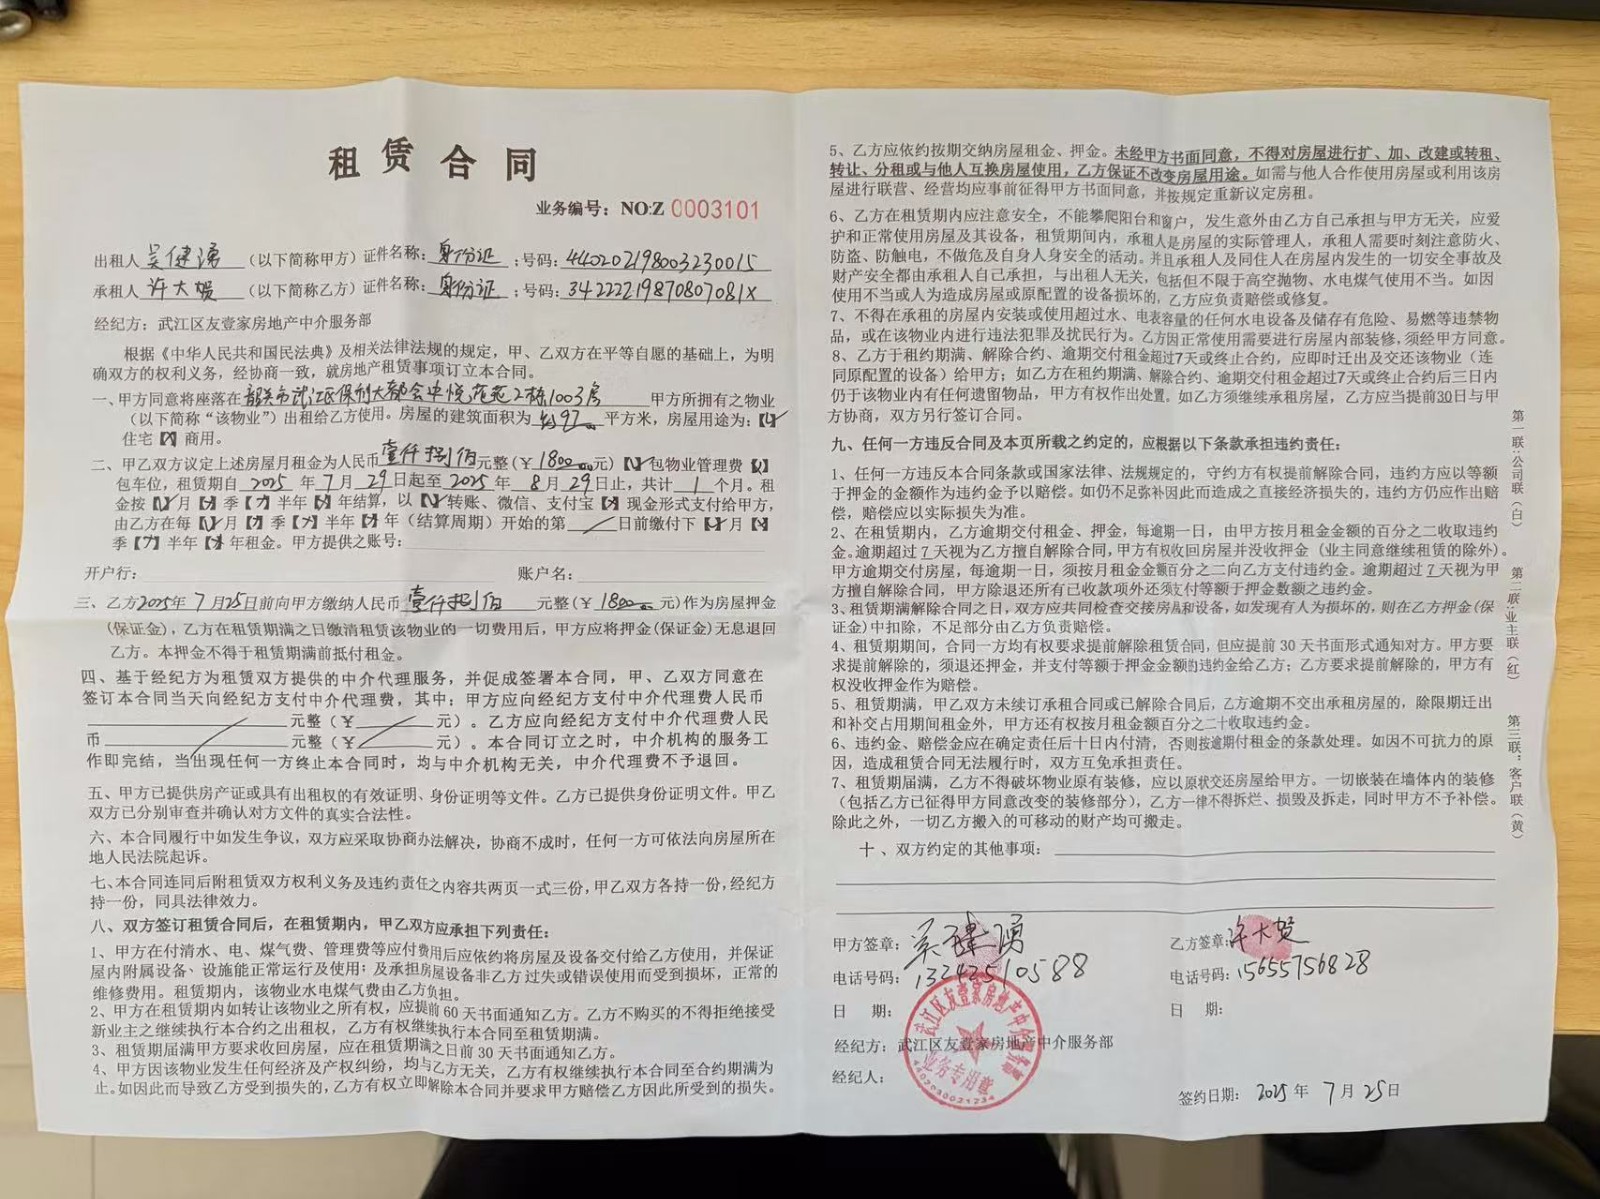 租赁合同
业务编号：NO:Z 0003101
出租人 吴健湧 （以下简称甲方）证件名称：身份证；号码：440202198003230015
承租人 许大贺 （以下简称乙方）证件名称：身份证；号码：34222219870807081X
经纪方：武江区友壹家房地产中介服务部
根据《中华人民共和国民法典》及相关法律法规的规定，甲、乙双方在平等自愿的基础上，为明
确双方的权利义务，经协商一致，就房地产租赁事项订立本合同。
一、甲方同意将座落在韶关市武江区保利大都会中悦花苑2栋1003房 甲方所拥有之物业
（以下简称“该物业”）出租给乙方使用。房屋的建筑面积为 约97 平方米，房屋用途为：【✓】
住宅【✗】商用。
二、甲乙双方议定上述房屋月租金为人民币壹仟捌佰元整(￥1800元)【✓】包物业管理费【】
包车位，租赁期自 2025 年 7 月 29 日起至 2025 年 8 月 29 日止，共计 1 个月。租
金按【✓】月【✗】季【✗】半年【✗】年结算，以【✓】转账、微信、支付宝【✗】现金形式支付给甲方，
由乙方在每【✓】月【✗】季【✗】半年【✗】年（结算周期）开始的第 ／ 日前缴付下【✓】月【✗】
季【✗】半年【✗】年租金。甲方提供之账号：
开户行： 账户名：
三、乙方2025年 7 月25日前向甲方缴纳人民币 壹仟捌佰 元整(￥1800元)作为房屋押金
(保证金)，乙方在租赁期满之日缴清租赁该物业的一切费用后，甲方应将押金(保证金)无息退回
乙方。本押金不得于租赁期满前抵付租金。
四、基于经纪方为租赁双方提供的中介代理服务，并促成签署本合同，甲、乙双方同意在
签订本合同当天向经纪方支付中介代理费，其中：甲方应向经纪方支付中介代理费人民币
／ 元整（￥ ／ 元）。乙方应向经纪方支付中介代理费人民
币 ／ 元整（￥ ／ 元）。本合同订立之时，中介机构的服务工
作即完结，当出现任何一方终止本合同时，均与中介机构无关，中介代理费不予退回。
五、甲方已提供房产证或具有出租权的有效证明、身份证明等文件。乙方已提供身份证明文件。甲乙
双方已分别审查并确认对方文件的真实合法性。
六、本合同履行中如发生争议，双方应采取协商办法解决，协商不成时，任何一方可依法向房屋所在
地人民法院起诉。
七、本合同连同后附租赁双方权利义务及违约责任之内容共两页一式三份，甲乙双方各持一份，经纪方
持一份，同具法律效力。
八、双方签订租赁合同后，在租赁期内，甲乙双方应承担下列责任：
1、甲方在付清水、电、煤气费、管理费等应付费用后应依约将房屋及设备交付给乙方使用，并保证
屋内附属设备、设施能正常运行及使用；及承担房屋设备非乙方过失或错误使用而受到损坏，正常的
维修费用。租赁期内，该物业水电煤气费由乙方负担。
2、甲方在租赁期内如转让该物业之所有权，应提前60天书面通知乙方。乙方不购买的不得拒绝接受
新业主之继续执行本合约之出租权，乙方有权继续执行本合同至租赁期满。
3、租赁期届满甲方要求收回房屋，应在租赁期满之日前30天书面通知乙方。
4、甲方因该物业发生任何经济及产权纠纷，均与乙方无关，乙方有权继续执行本合同至合约期满为
止。如因此而导致乙方受到损失的，乙方有权立即解除本合同并要求甲方赔偿乙方因此所受到的损失。
5、乙方应依约按期交纳房屋租金、押金。未经甲方书面同意，不得对房屋进行扩、加、改建或转租、
转让、分租或与他人互换房屋使用，乙方保证不改变房屋用途。如需与他人合作使用房屋或利用该房
屋进行联营、经营均应事前征得甲方书面同意，并按规定重新议定房租。
6、乙方在租赁期内应注意安全，不能攀爬阳台和窗户，发生意外由乙方自己承担与甲方无关，应爱
护和正常使用房屋及其设备，租赁期间内，承租人是房屋的实际管理人，承租人需要时刻注意防火、
防盗、防触电，不做危及自身人身安全的活动。并且承租人及同住人在房屋内发生的一切安全事故及
财产安全都由承租人自己承担，与出租人无关，包括但不限于高空抛物、水电煤气使用不当。如因
使用不当或人为造成房屋或原配置的设备损坏的，乙方应负责赔偿或修复。
7、不得在承租的房屋内安装或使用超过水、电表容量的任何水电设备及储存有危险、易燃等违禁物
品，或在该物业内进行违法犯罪及扰民行为。乙方因正常使用需要进行房屋内部装修，须经甲方同意。
8、乙方于租约期满、解除合约、逾期交付租金超过7天或终止合约，应即时迁出及交还该物业（连
同原配置的设备）给甲方；如乙方在租约期满、解除合约、逾期交付租金超过7天或终止合约后三日内
仍于该物业内有任何遗留物品，甲方有权作出处置。如乙方须继续承租房屋，乙方应当提前30日与甲
方协商，双方另行签订合同。
九、任何一方违反合同及本页所载之约定的，应根据以下条款承担违约责任：
1、任何一方违反本合同条款或国家法律、法规规定的，守约方有权提前解除合同，违约方应以等额
于押金的金额作为违约金予以赔偿。如仍不足弥补因此而造成之直接经济损失的，违约方仍应作出赔
偿，赔偿应以实际损失为准。
2、在租赁期内，乙方逾期交付租金、押金，每逾期一日，由甲方按月租金金额的百分之二收取违约
金。逾期超过 7 天视为乙方擅自解除合同，甲方有权收回房屋并没收押金（业主同意继续租赁的除外）。
甲方逾期交付房屋，每逾期一日，须按月租金金额百分之二向乙方支付违约金。逾期超过 7 天视为甲
方擅自解除合同，甲方除退还所有已收款项外还须支付等额于押金数额之违约金。
3、租赁期满解除合同之日，双方应共同检查交接房品和设备，如发现有人为损坏的，则在乙方押金(保
证金)中扣除，不足部分由乙方负责赔偿。
4、租赁期期间，合同一方均有权要求提前解除租赁合同，但应提前30天书面形式通知对方。甲方要
求提前解除的，须退还押金，并支付等额于押金金额的违约金给乙方；乙方要求提前解除的，甲方有
权没收押金作为赔偿。
5、租赁期满，甲乙双方未续订承租合同或已解除合同后，乙方逾期不交出承租房屋的，除限期迁出
和补交占用期间租金外，甲方还有权按月租金额百分之二十收取违约金。
6、违约金、赔偿金应在确定责任后十日内付清，否则按逾期付租金的条款处理。如因不可抗力的原
因，造成租赁合同无法履行时，双方互免承担责任。
7、租赁期届满，乙方不得破坏物业原有装修，应以原状交还房屋给甲方。一切嵌装在墙体内的装修
（包括乙方已征得甲方同意改变的装修部分），乙方一律不得拆烂、损毁及拆走，同时甲方不予补偿。
除此之外，一切乙方搬入的可移动的财产均可搬走。
十、双方约定的其他事项：
甲方签章：吴健湧
乙方签章：许大贺
电话号码：13242510588
电话号码：15655756828
日 期：
日 期：
经纪方：武江区友壹家房地产中介服务部
经纪人：
签约日期：2025 年 7 月 25 日
武江区友壹家房地产中介服务部
业务专用章
第一联：公司联（白）
第二联：业主联（红）
第三联：客户联（黄）